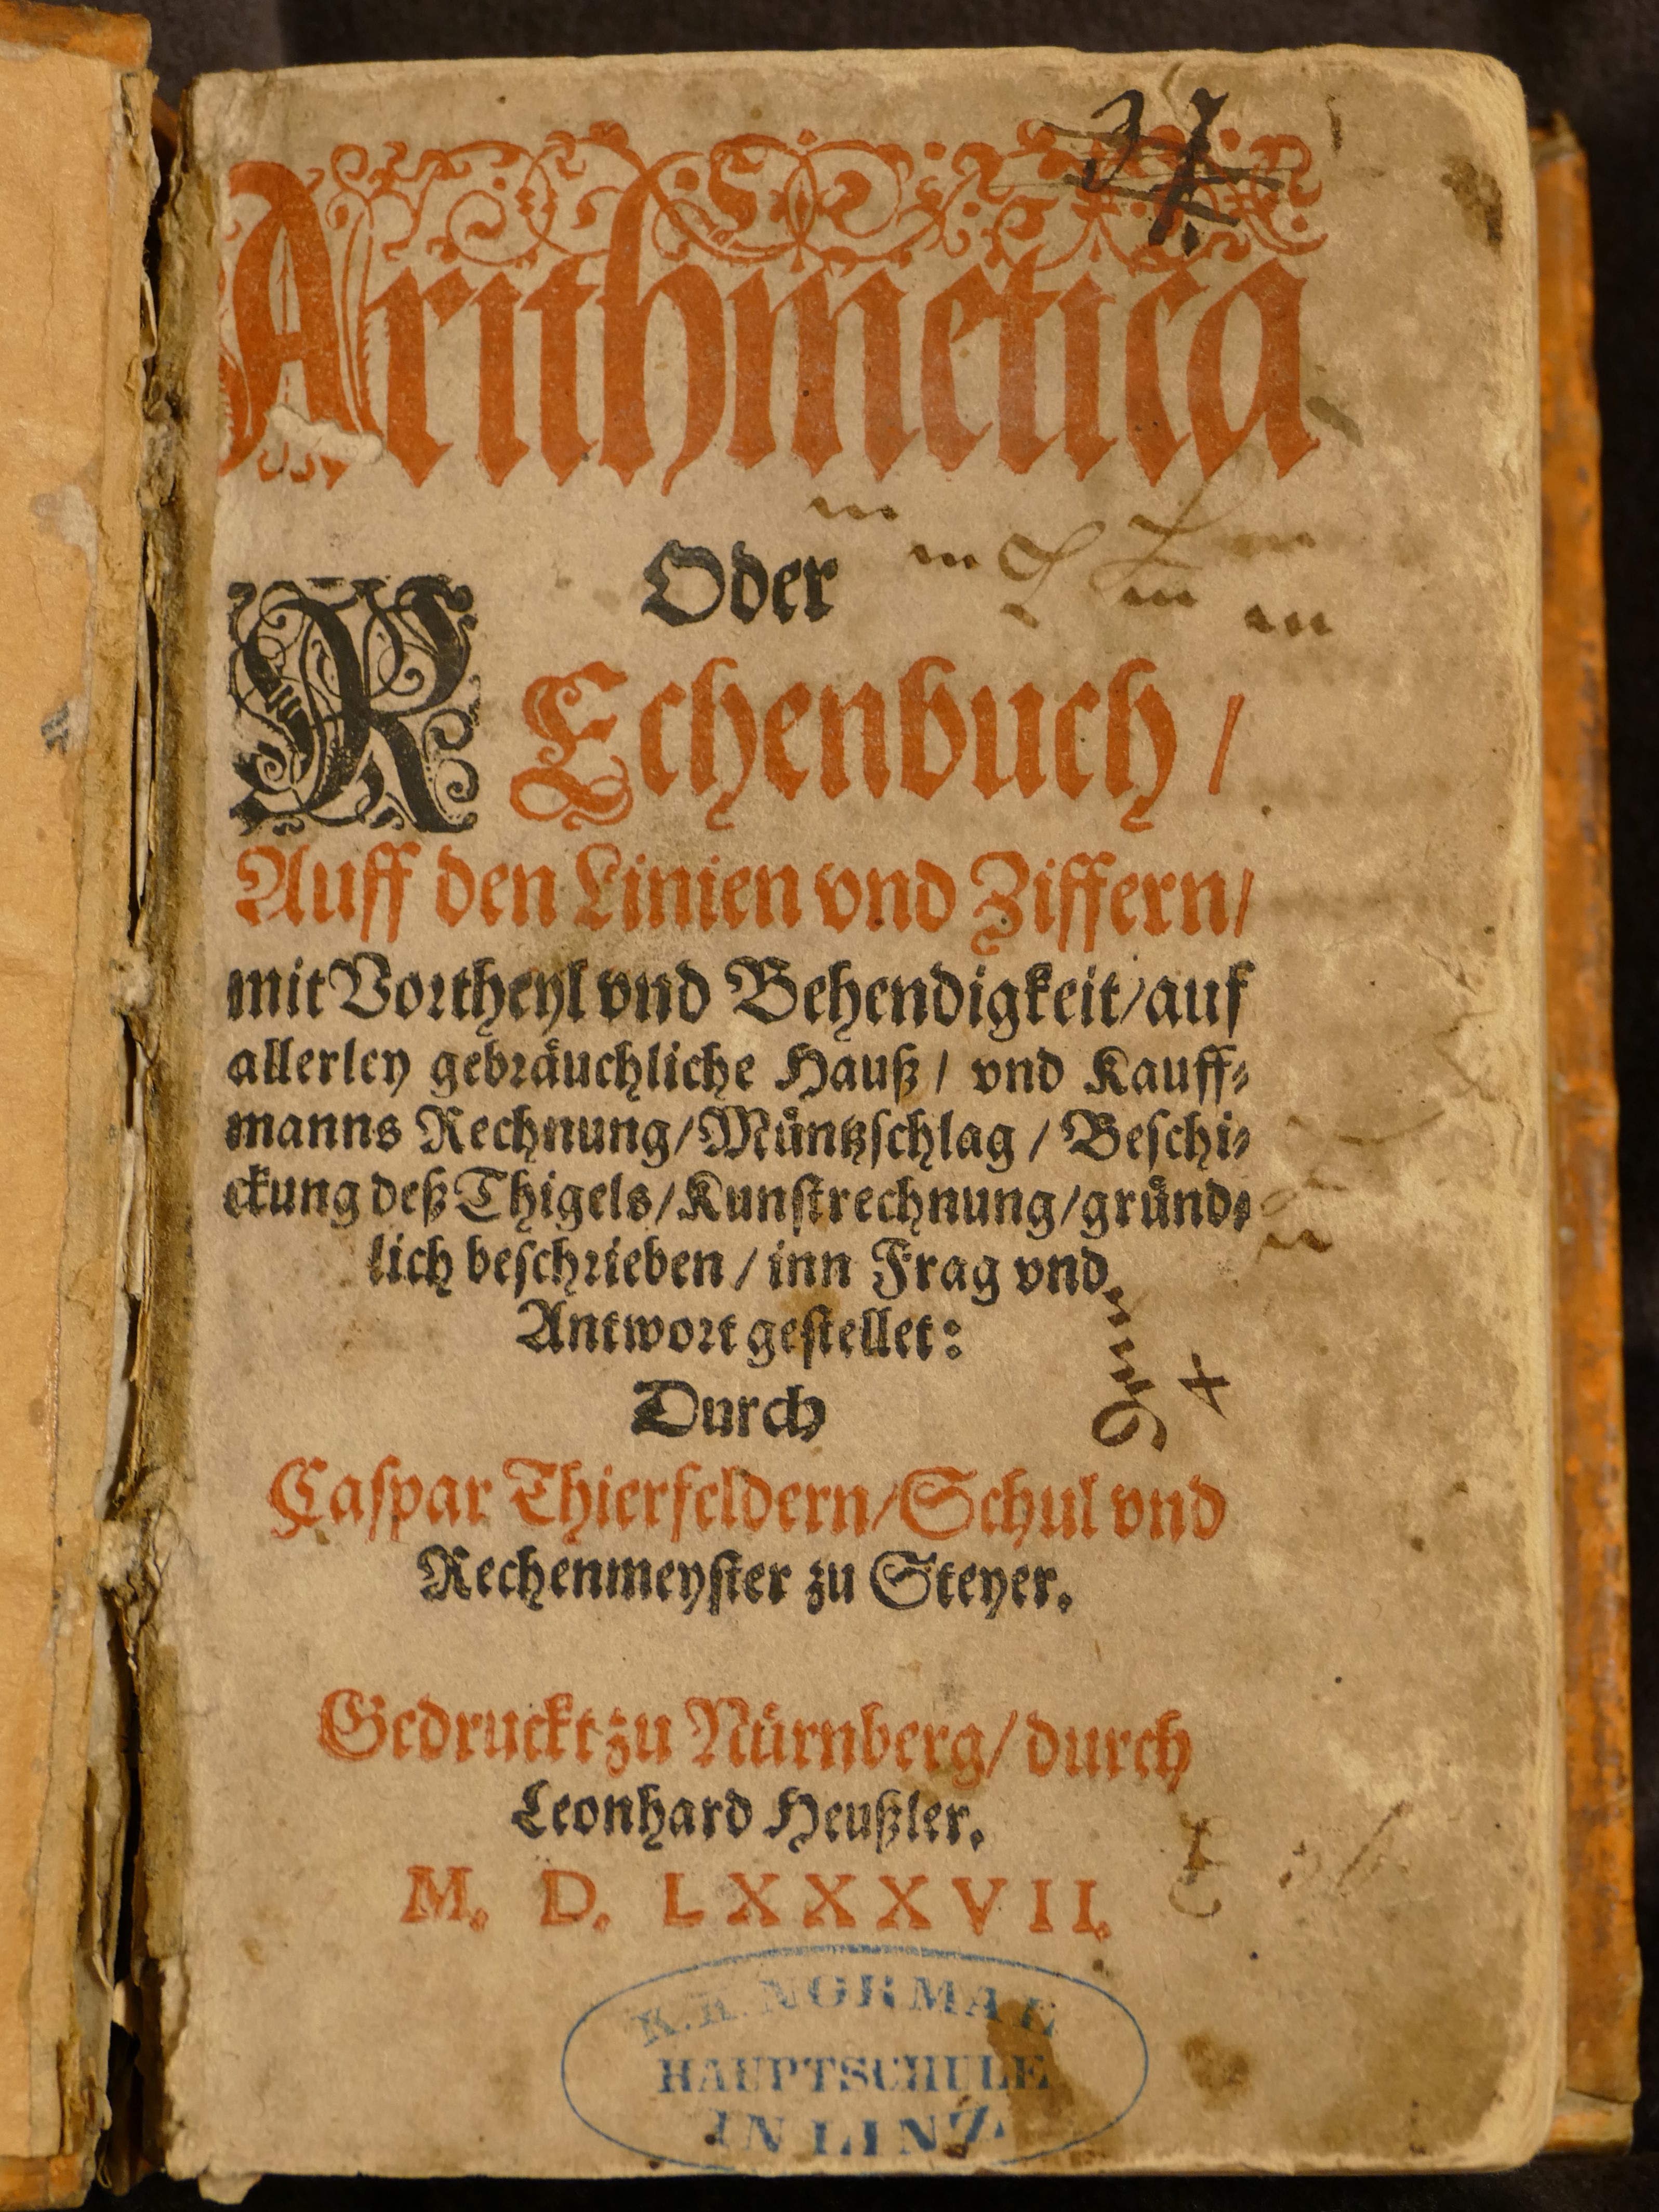 37
Arithmetica
Oder
REchenbuch /
Auff den Linien vnd Ziffern /
mit Vortheyl vnd Behendigkeit / auf
allerley gebräuchliche Hauß / vnd Kauff⸗
manns Rechnung / Müntzschlag / Beschi⸗
ckung deß Thigels / Kunstrechnung / gründ⸗
lich beschrieben / inn Frag vnd
Antwort gestellet:
Durch
Caspar Thierfeldern / Schul vnd
Rechenmeyster zu Steyer.
Gedruckt zu Nürnberg / durch
Leonhard Heußler.
M. D. LXXXVII.
K. K. NORMAL
HAUPTSCHULE
IN LINZ.